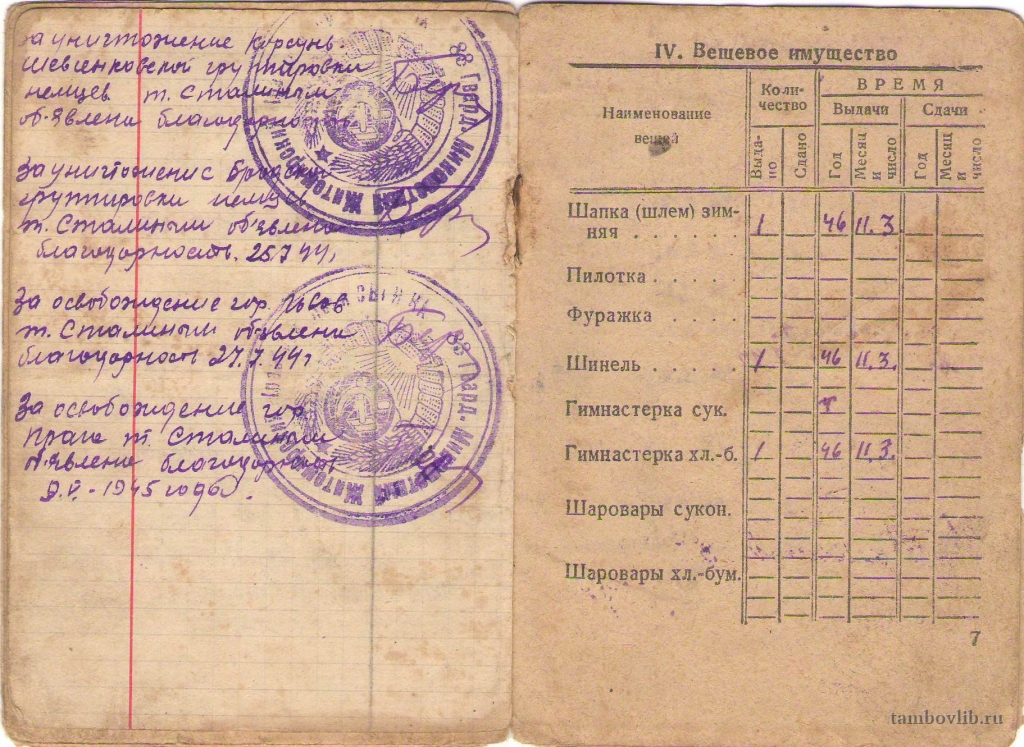 За уничтожение Корсунь-
Шевченковской группировки
немцев т. Сталиным
об'явлена благодарность
За уничтожение Бродской
группировки немцев
т. Сталиным об'явлена
благодарность. 25.7.44 г.
За освобождение гор. Львов
т. Сталиным об'явлена
благодарность 27.7.44 г
За освобождение гор
Прага т. Сталиным
об'явлена благодарность
9.V.-1945 года.
88 Гвард. Минометный Житомирский
88 Гвард. Минометный Житомирский
IV. Вещевое имущество
Наименование
вещей
Коли-
чество
ВРЕМЯ
Выдачи
Сдачи
Выда-
но
Сдано
Год
Месяц
и
число
Год
Месяц
и
число
Шапка (шлем) зим-
няя . . . . . . 1 46 11.3.
Пилотка . . . . .
Фуражка . . . . .
Шинель . . . . . 1 46 11.3.
Гимнастерка сук.
Гимнастерка хл.-б. 1 46 11.3.
Шаровары сукон.
Шаровары хл.-бум.
7
tambovlib.ru